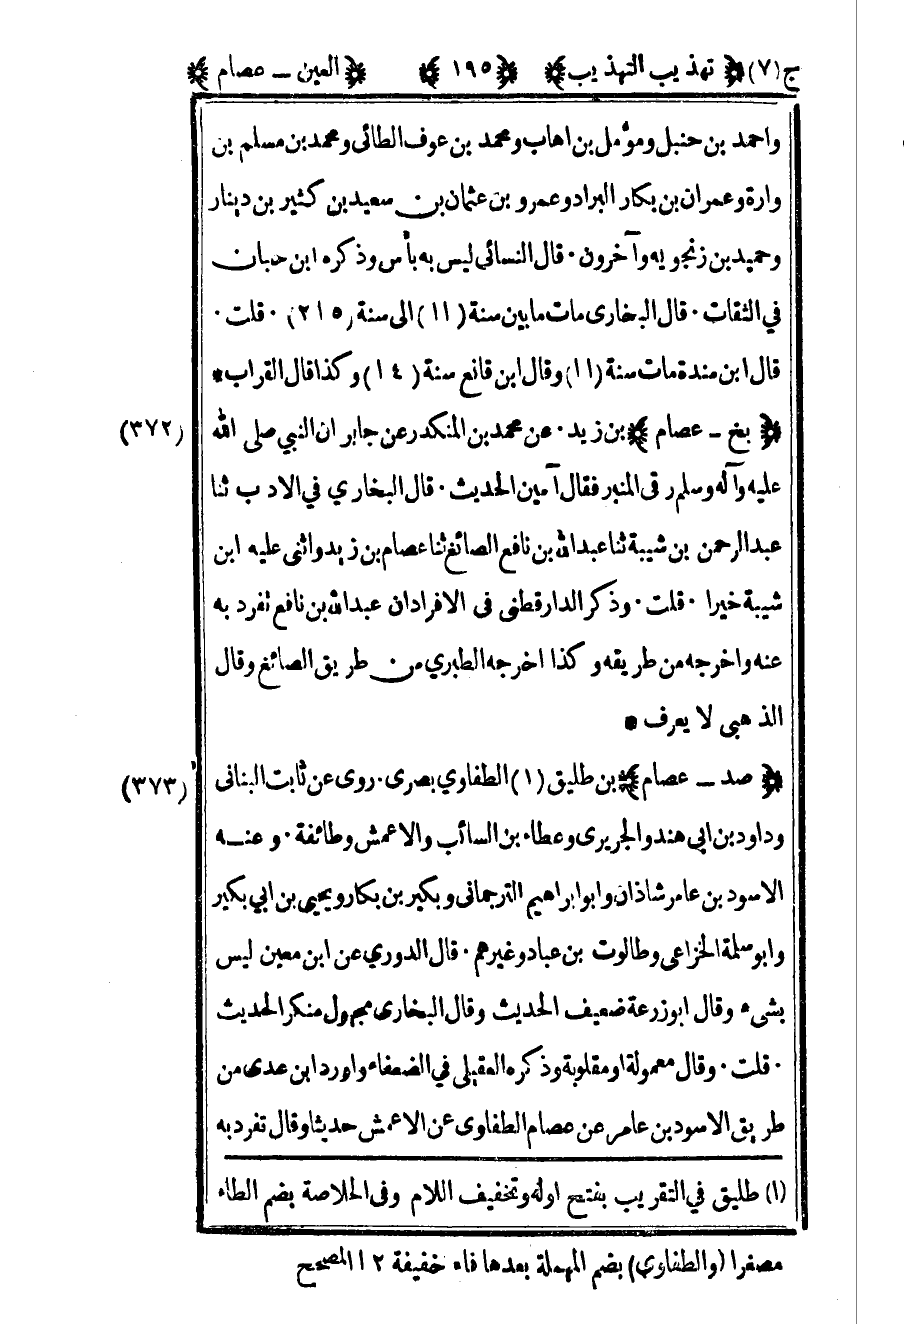 ج(٧) ﴿ تهذيب التهذيب ﴾ ﴿ ١٩٥ ﴾ ﴿ العين ـ عصام ﴾
واحمد بن حنبل ومؤمل بن اهاب ومحمد بن عوف الطائى ومحمد بن مسلم بن
وارة وعمران بن بكار البراد وعمرو بن عثمان بن سعيد بن كثير بن دينار
وحميد بن زنجويه وآخرون . قال النسائى ليس به بأس وذكره ابن حبان
في الثقات . قال البخارى مات ما بين سنة (١١) الى سنة (٢١٥) . قلت .
قال ابن مندة مات سنة (١١) وقال ابن قانع سنة (١٤) وكذا قال القراب *
﴿ بخ ـ عصام ﴾ بن زيد . عن محمد بن المنكدر عن جابر ان النبي صلى الله (٣٧٢)
عليه وآله وسلم رقى المنبر فقال آمين الحديث . قال البخاري في الادب ثنا
عبدالرحمن بن شيبة ثنا عبدالله بن نافع الصائغ ثنا عصام بن زيد واثنى عليه ابن
شيبة خيرا . قلت . وذكر الدارقطنى فى الافراد ان عبدالله بن نافع تفرد به
عنه واخرجه من طريقه وكذا اخرجه الطبري من طريق الصائغ وقال
الذهبى لا يعرف *
﴿ صد ـ عصام ﴾ بن طليق (١) الطفاوي بصرى . روى عن ثابت البنانى (٣٧٣)
وداود بن ابى هند والجريرى وعطاء بن السائب والاعمش وطائفة . وعنه
الاسود بن عامر شاذان وابو ابراهيم الترجمانى وبكير بن بكار ويحيى بن ابي بكير
وابو سلمة الخزاعى وطالوت بن عباد وغيرهم . قال الدوري عن ابن معين ليس
بشىء وقال ابو زرعة ضعيف الحديث وقال البخارى مجهول منكر الحديث
. قلت . وقال معمولة او مقلوبة وذكره العقيلى في الضعفاء واورد ابن عدى من
طريق الاسود بن عامر عن عصام الطفاوى عن الاعمش حديثا وقال تفرد به
(١) طليق في التقريب بفتح اوله وتخفيف اللام وفى الخلاصة بضم الطاء
مصغرا (والطفاوي) بضم المهملة بعدها فاء خفيفة ١٢ المصحح